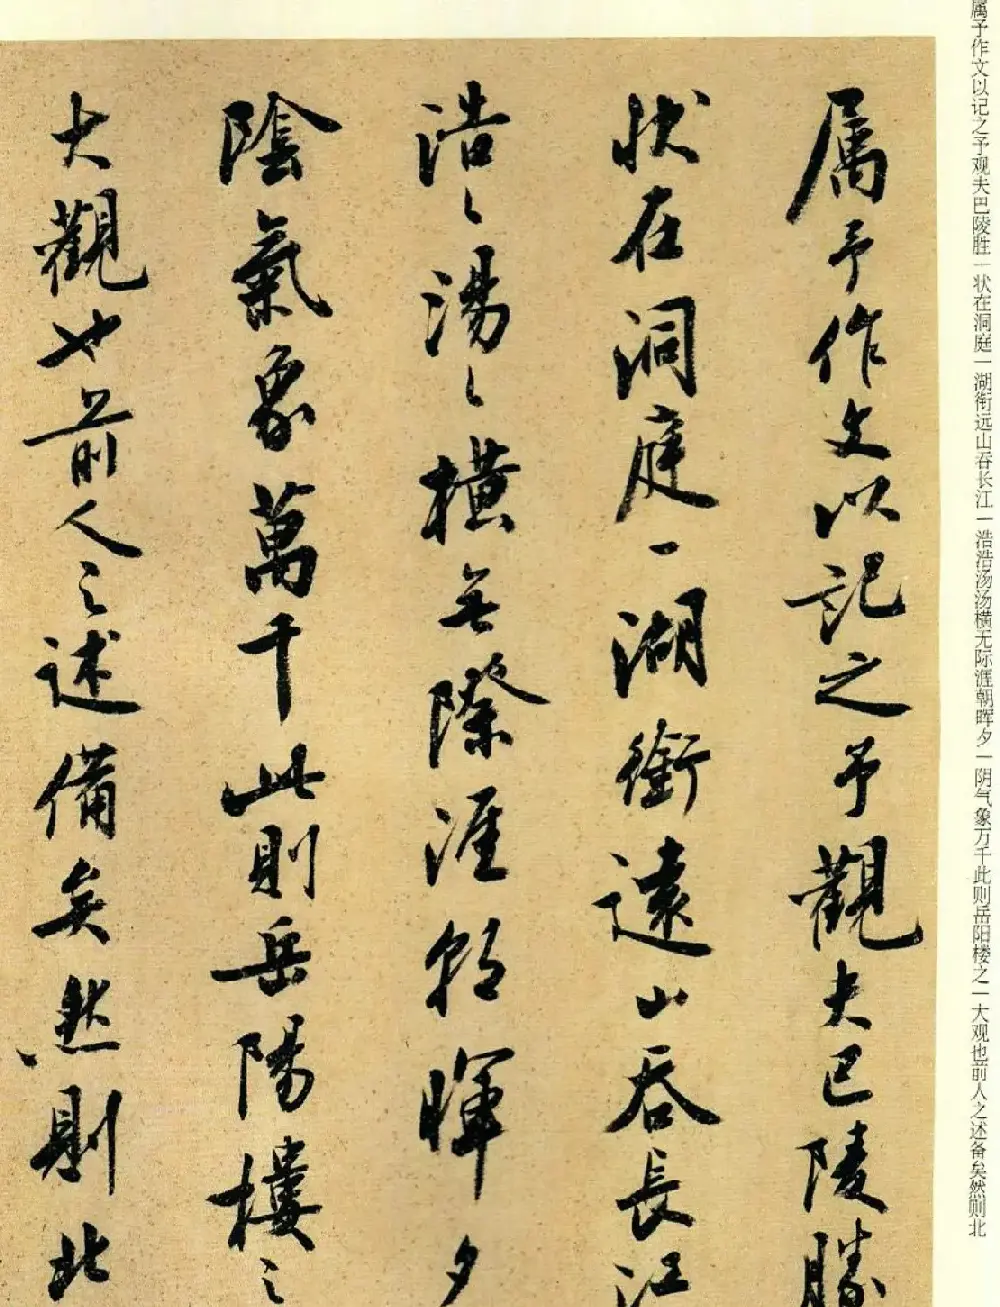 属予作文以記之予觀夫巴陵勝
状在洞庭一湖銜遠山吞長江
浩〻湯〻橫無際涯朝暉夕
陰氣象萬千此則岳陽樓之
大觀也前人之述備矣然則北
属予作文以记之予观夫巴陵胜一状在洞庭一湖衔远山吞长江一浩浩汤汤横无际涯朝晖夕一阴气象万千此则岳阳楼之一大观也前人之述备矣然则北